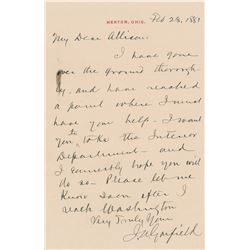 MENTOR, OHIO.
Feb 28, 1881
My Dear Allison:
I have gone
over the ground thorough-
ly and have reached
a point where I must
have your help - I want
you to take the Interior
Department - and
I earnestly hope you will
do so - Please let me
know soon after I
reach Washington
Very Truly Yours
J. A. Garfield